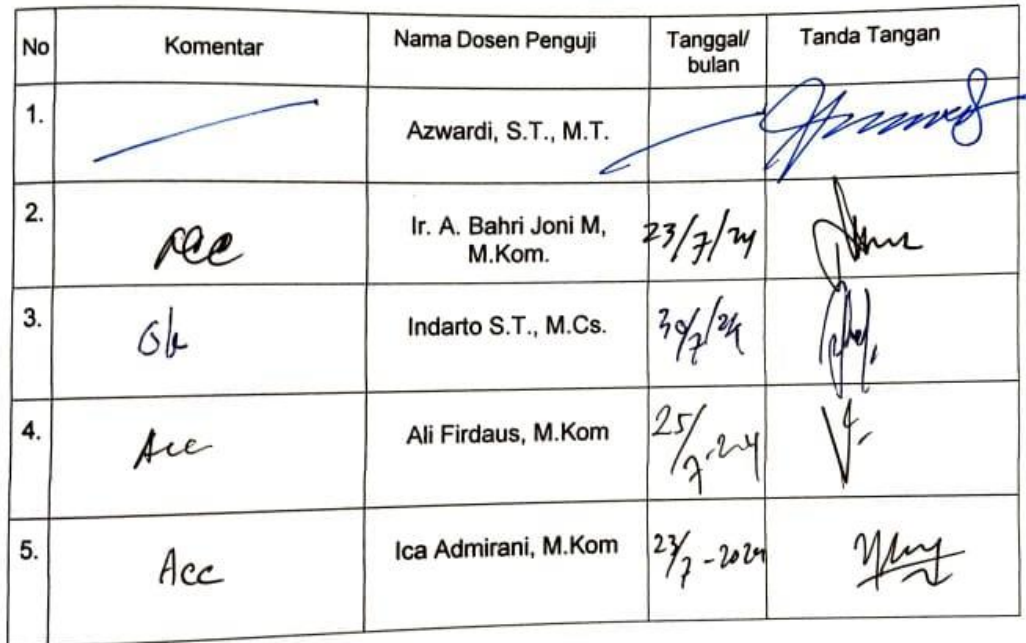 No Komentar Nama Dosen Penguji Tanggal/ Tanda Tangan
bulan
1. Azwardi, S.T., M.T.
2. Acc Ir. A. Bahri Joni M, 23/7/24
M.Kom.
3. Ok Indarto S.T., M.Cs. 30/7/24
4. Acc Ali Firdaus, M.Kom 25/7-24
5. Acc Ica Admirani, M.Kom 23/7-2024